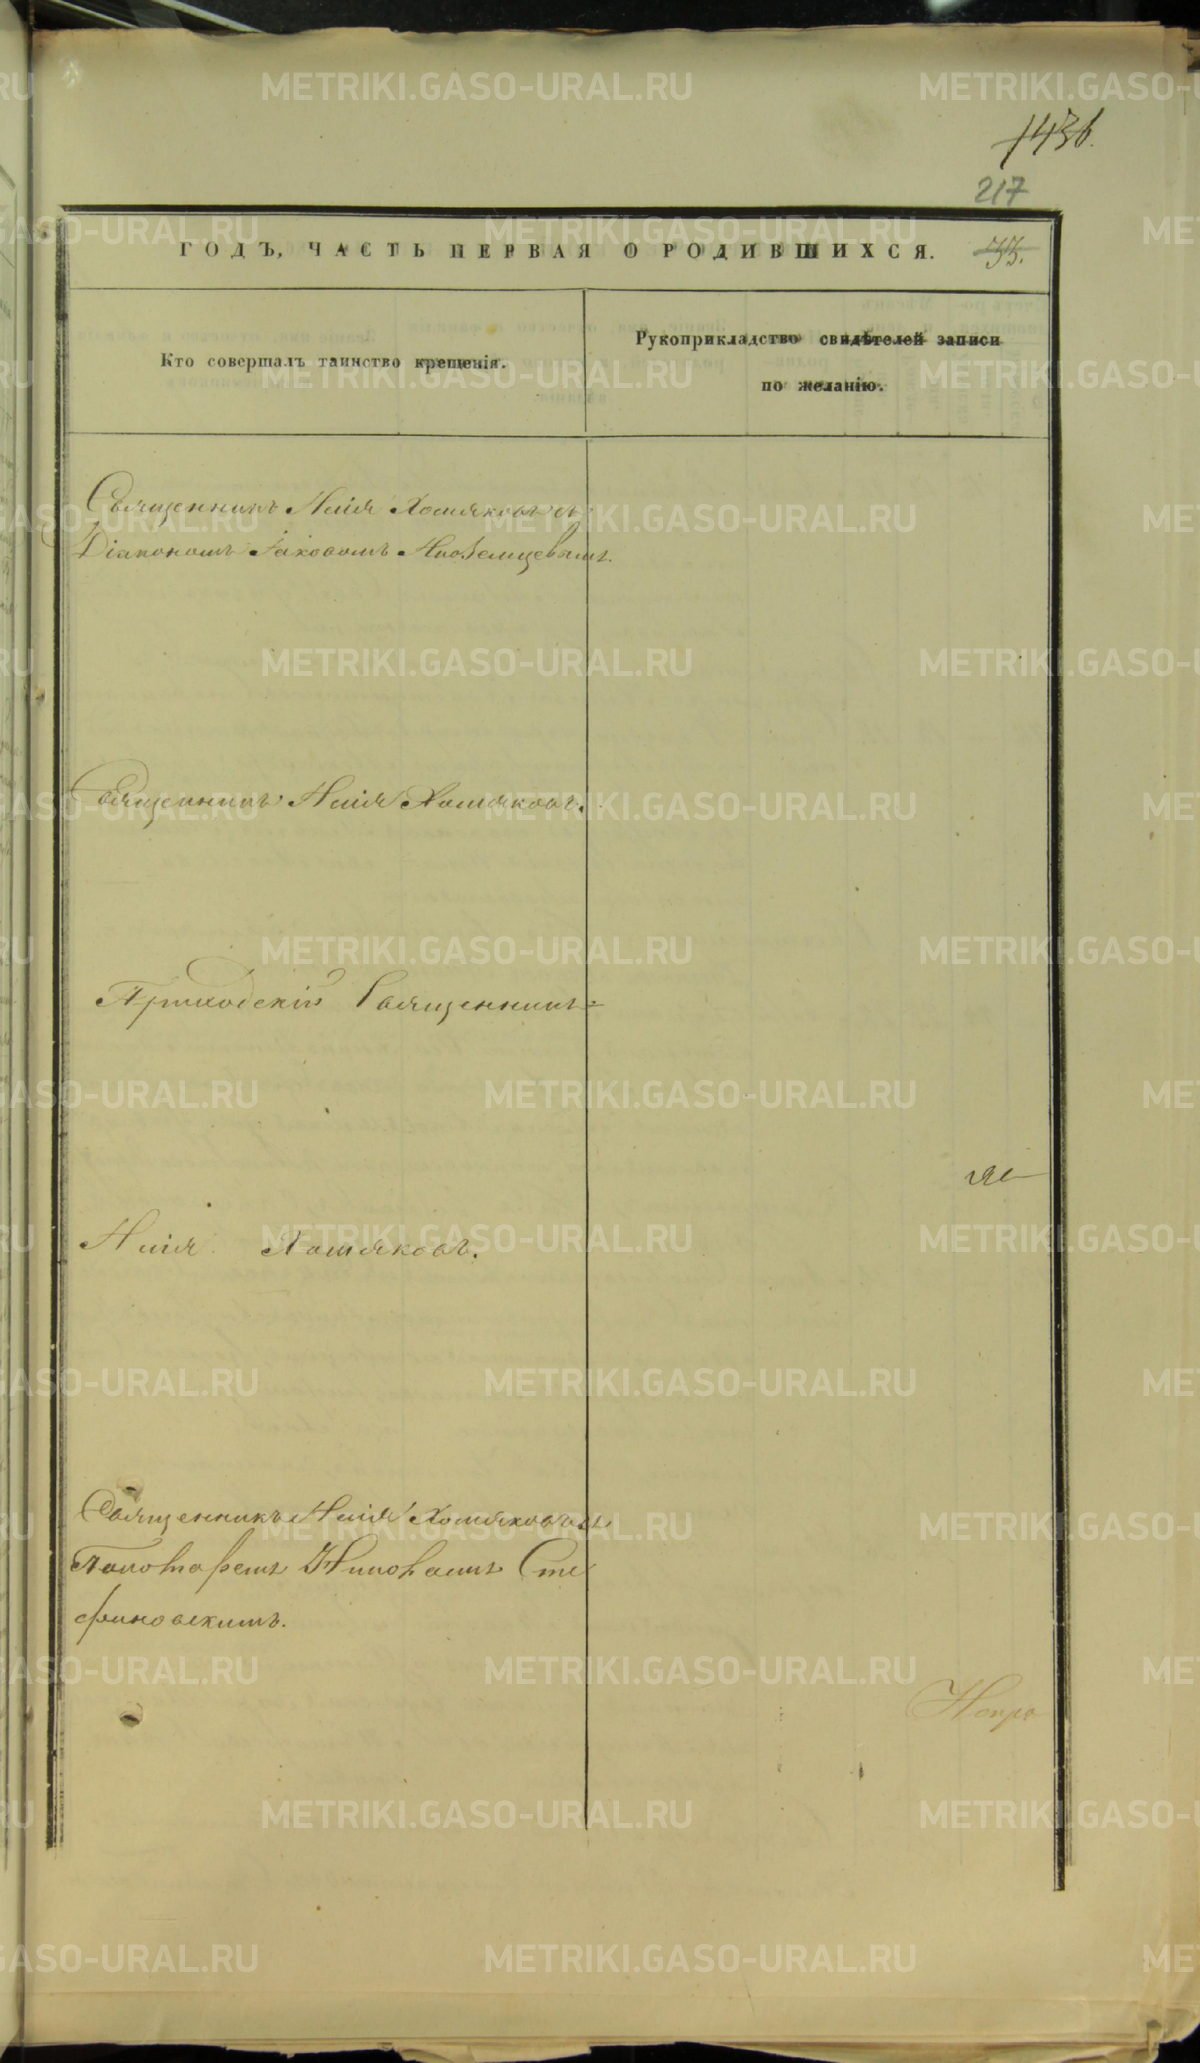 1436.
217
ГОДЪ, ЧАСТЬ ПЕРВАЯ О РОДИВШИХСЯ. 33.
Кто совершалъ таинство крещенія.
Рукоприкладство свидѣтелей записи
по желанію.
Священникъ Илія Хомяковъ съ
Діакономъ Іаковомъ
Священникъ Илія Хомяковъ.
Приходскій Священникъ
Илія Хомяковъ.
Священникъ Илія Хомяковъ съ
Сте
фановскимъ.
METRIKI.GASO-URAL.RU